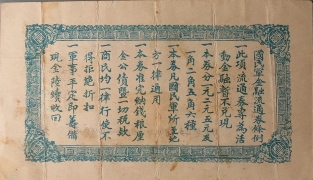 國民軍金融流通券條例
一此項流通券專為活
動金融暫不兌現
一本券分一元二元五元及
一角二角五角六種
一本券凡國民軍所至地
方一律適用
一本券准完納錢粮厘
金公債曁一切税欵
一商民均一律行使不
得拒絶折扣
一軍事平定即籌備
現金陸續收回